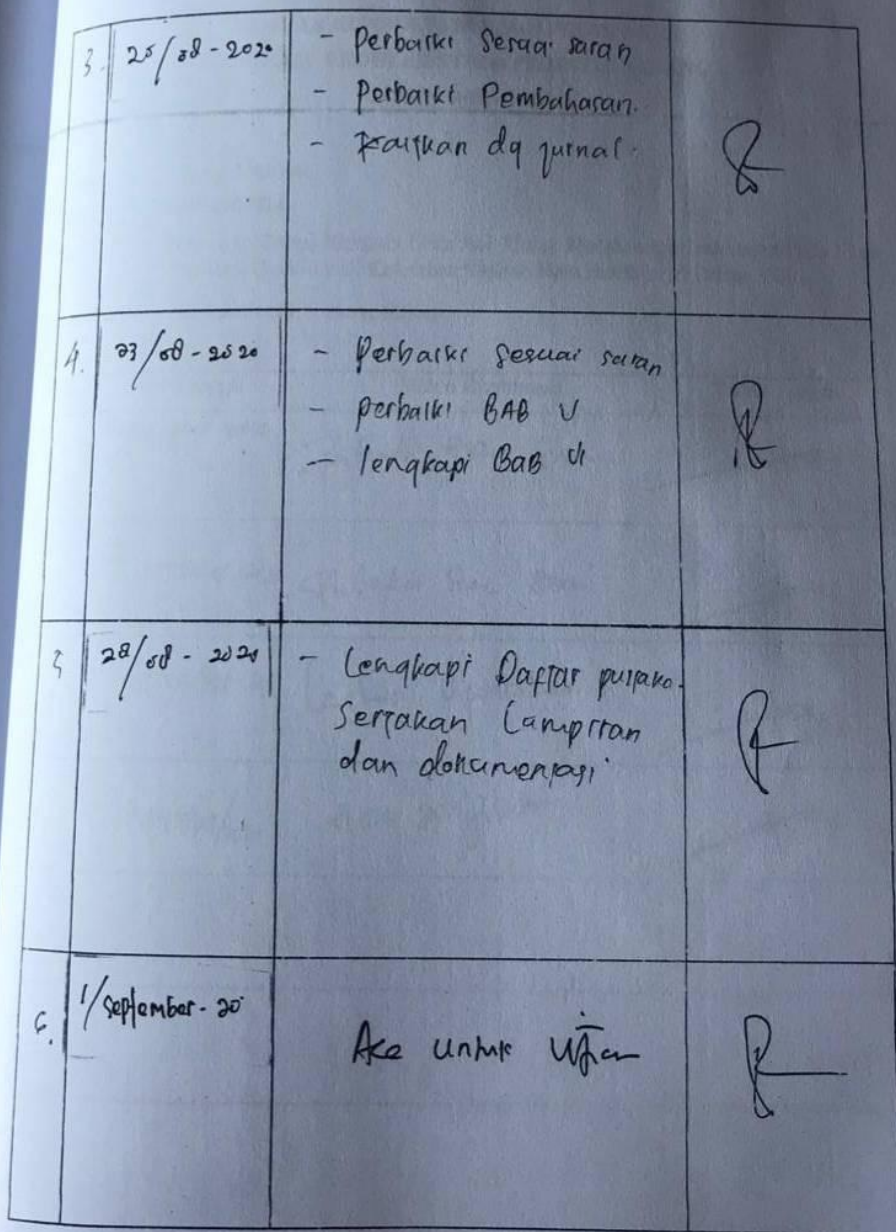 3. 25/08-2020
- Perbaiki Sesuai saran
- Perbaiki Pembahasan.
- Kaitkan dg jurnal.
4. 23/08-2020
- Perbaiki Sesuai saran
- perbaiki BAB V
- lengkapi BaB VI
5 28/08-2020
- Lengkapi Daftar pustaka.
Sertakan Lampiran
dan dokumentasi
6. 1/September-20
Acc untuk Ujian